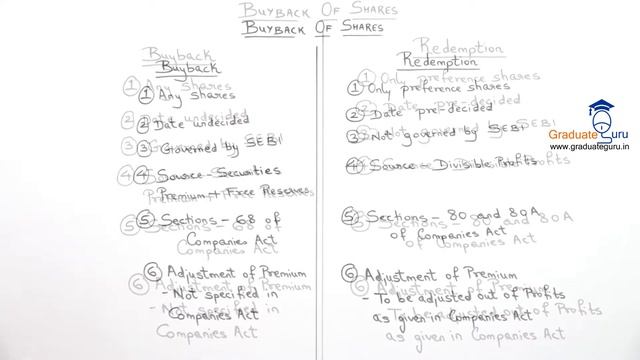 BUYBACK OF SHARES
BUYBACK OF SHARES
Buyback
Buyback
① Any shares
② Date undecided
③ Governed by SEBI
④ Source - Securities
Premium + Free Reserves
⑤ Sections - 68 of
Companies Act
⑥ Adjustment of Premium
- Not specified in
Companies Act
Companies Act
Redemption
Redemption
① Only preference shares
② Date pre-decided
③ Not governed by SEBI
④ Source - Divisible Profits
⑤ Sections - 80 and 80A
of Companies Act
⑥ Adjustment of Premium
- To be adjusted out of Profits
as given in Companies Act
as given in Companies Act
Graduate Guru
www.graduateguru.in